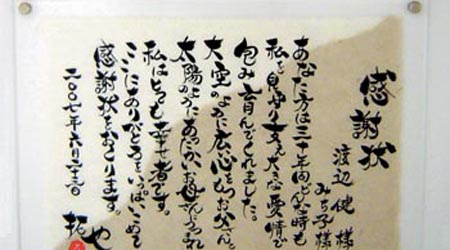 感謝状
渡辺健様
みち子様
あなた方は三十年間どんな時も
私を見守り支え大きな愛情で
包み育んでくれました。
大空のように広い心をもつお父さん。
太陽のようにあったかいお母さん。
私はとっても幸せ者です。
ここにありがとうをいっぱいこめて
感謝状をおくります。
二〇〇七年六月二十三日
拓や